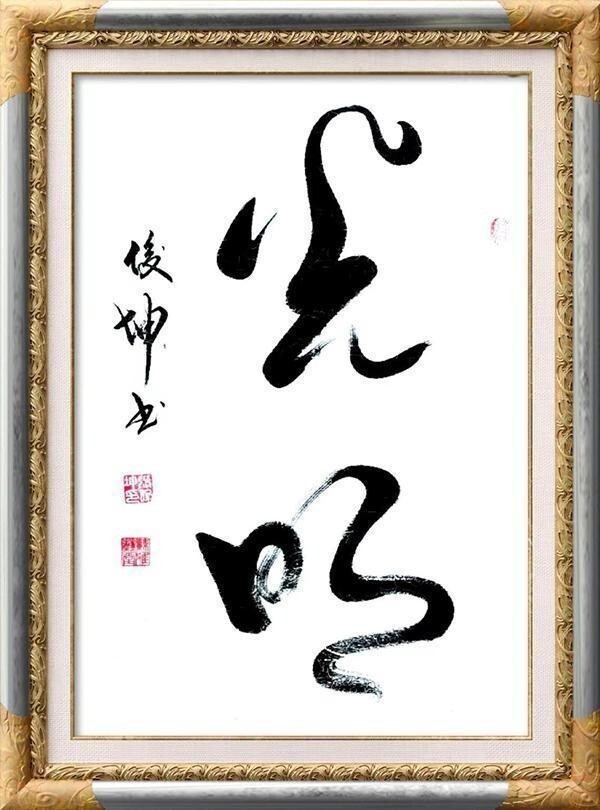 光明
俊坤书